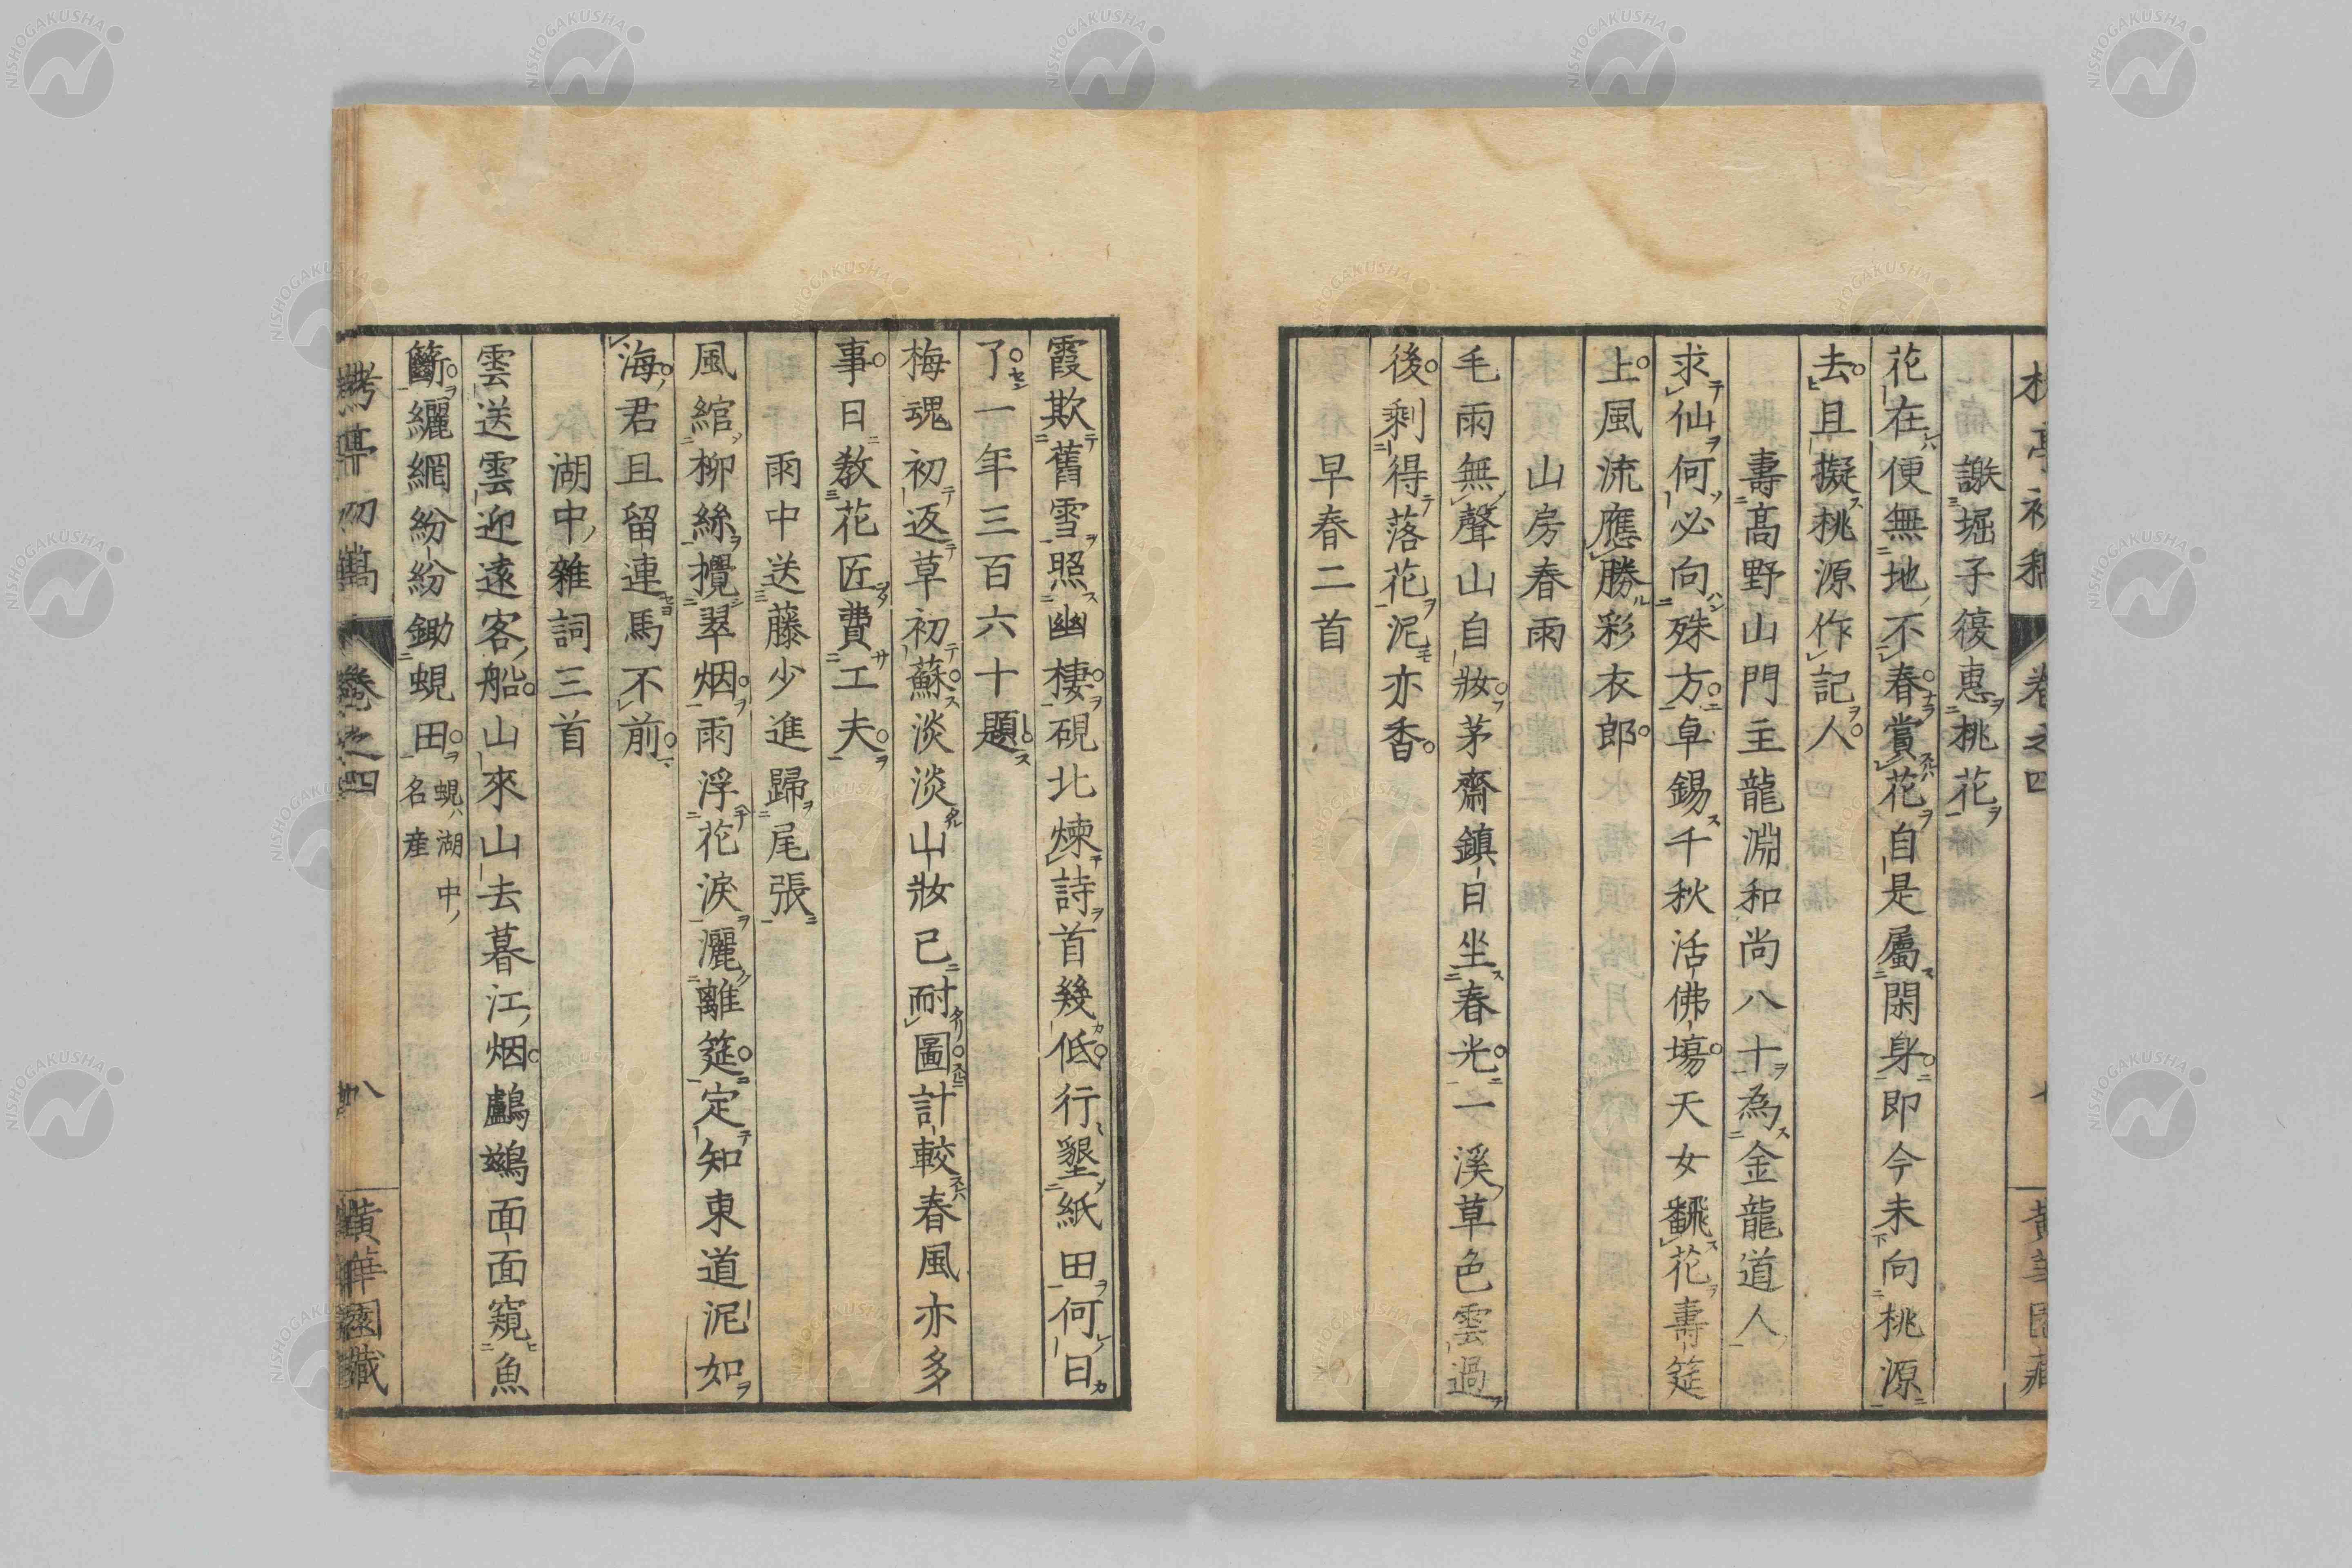 謝堀子復惠桃花
花在便無地不春賞花自是屬閑身即今未向桃源
去且擬桃源作記人
壽高野山門主龍淵和尚八十為金龍道人
求仙何必向殊方卓錫千秋活佛場天女飜花壽筵
上風流應勝彩衣郎
山房春雨
毛雨無聲山自妝茅齋鎮日坐春光一溪草色雲過
後剩得落花泥亦香
早春二首
霞欺舊雪照幽棲硯北煉詩首幾低行墾紙田何日
了一年三百六十題
梅魂初返草初蘇淡淡山妝已耐圖計較春風亦多
事日教花匠費工夫
雨中送藤少進歸尾張
風綰柳絲攪翠烟雨浮花淚灑離筵定知東道泥如
海君且留連馬不前
湖中雜詞三首
雲送雲迎遠客船山來山去暮江烟鸕鷀面面窺魚
籪纚網紛紛鋤蜆田蜆湖中
名産
卷之四
八
黃華園藏